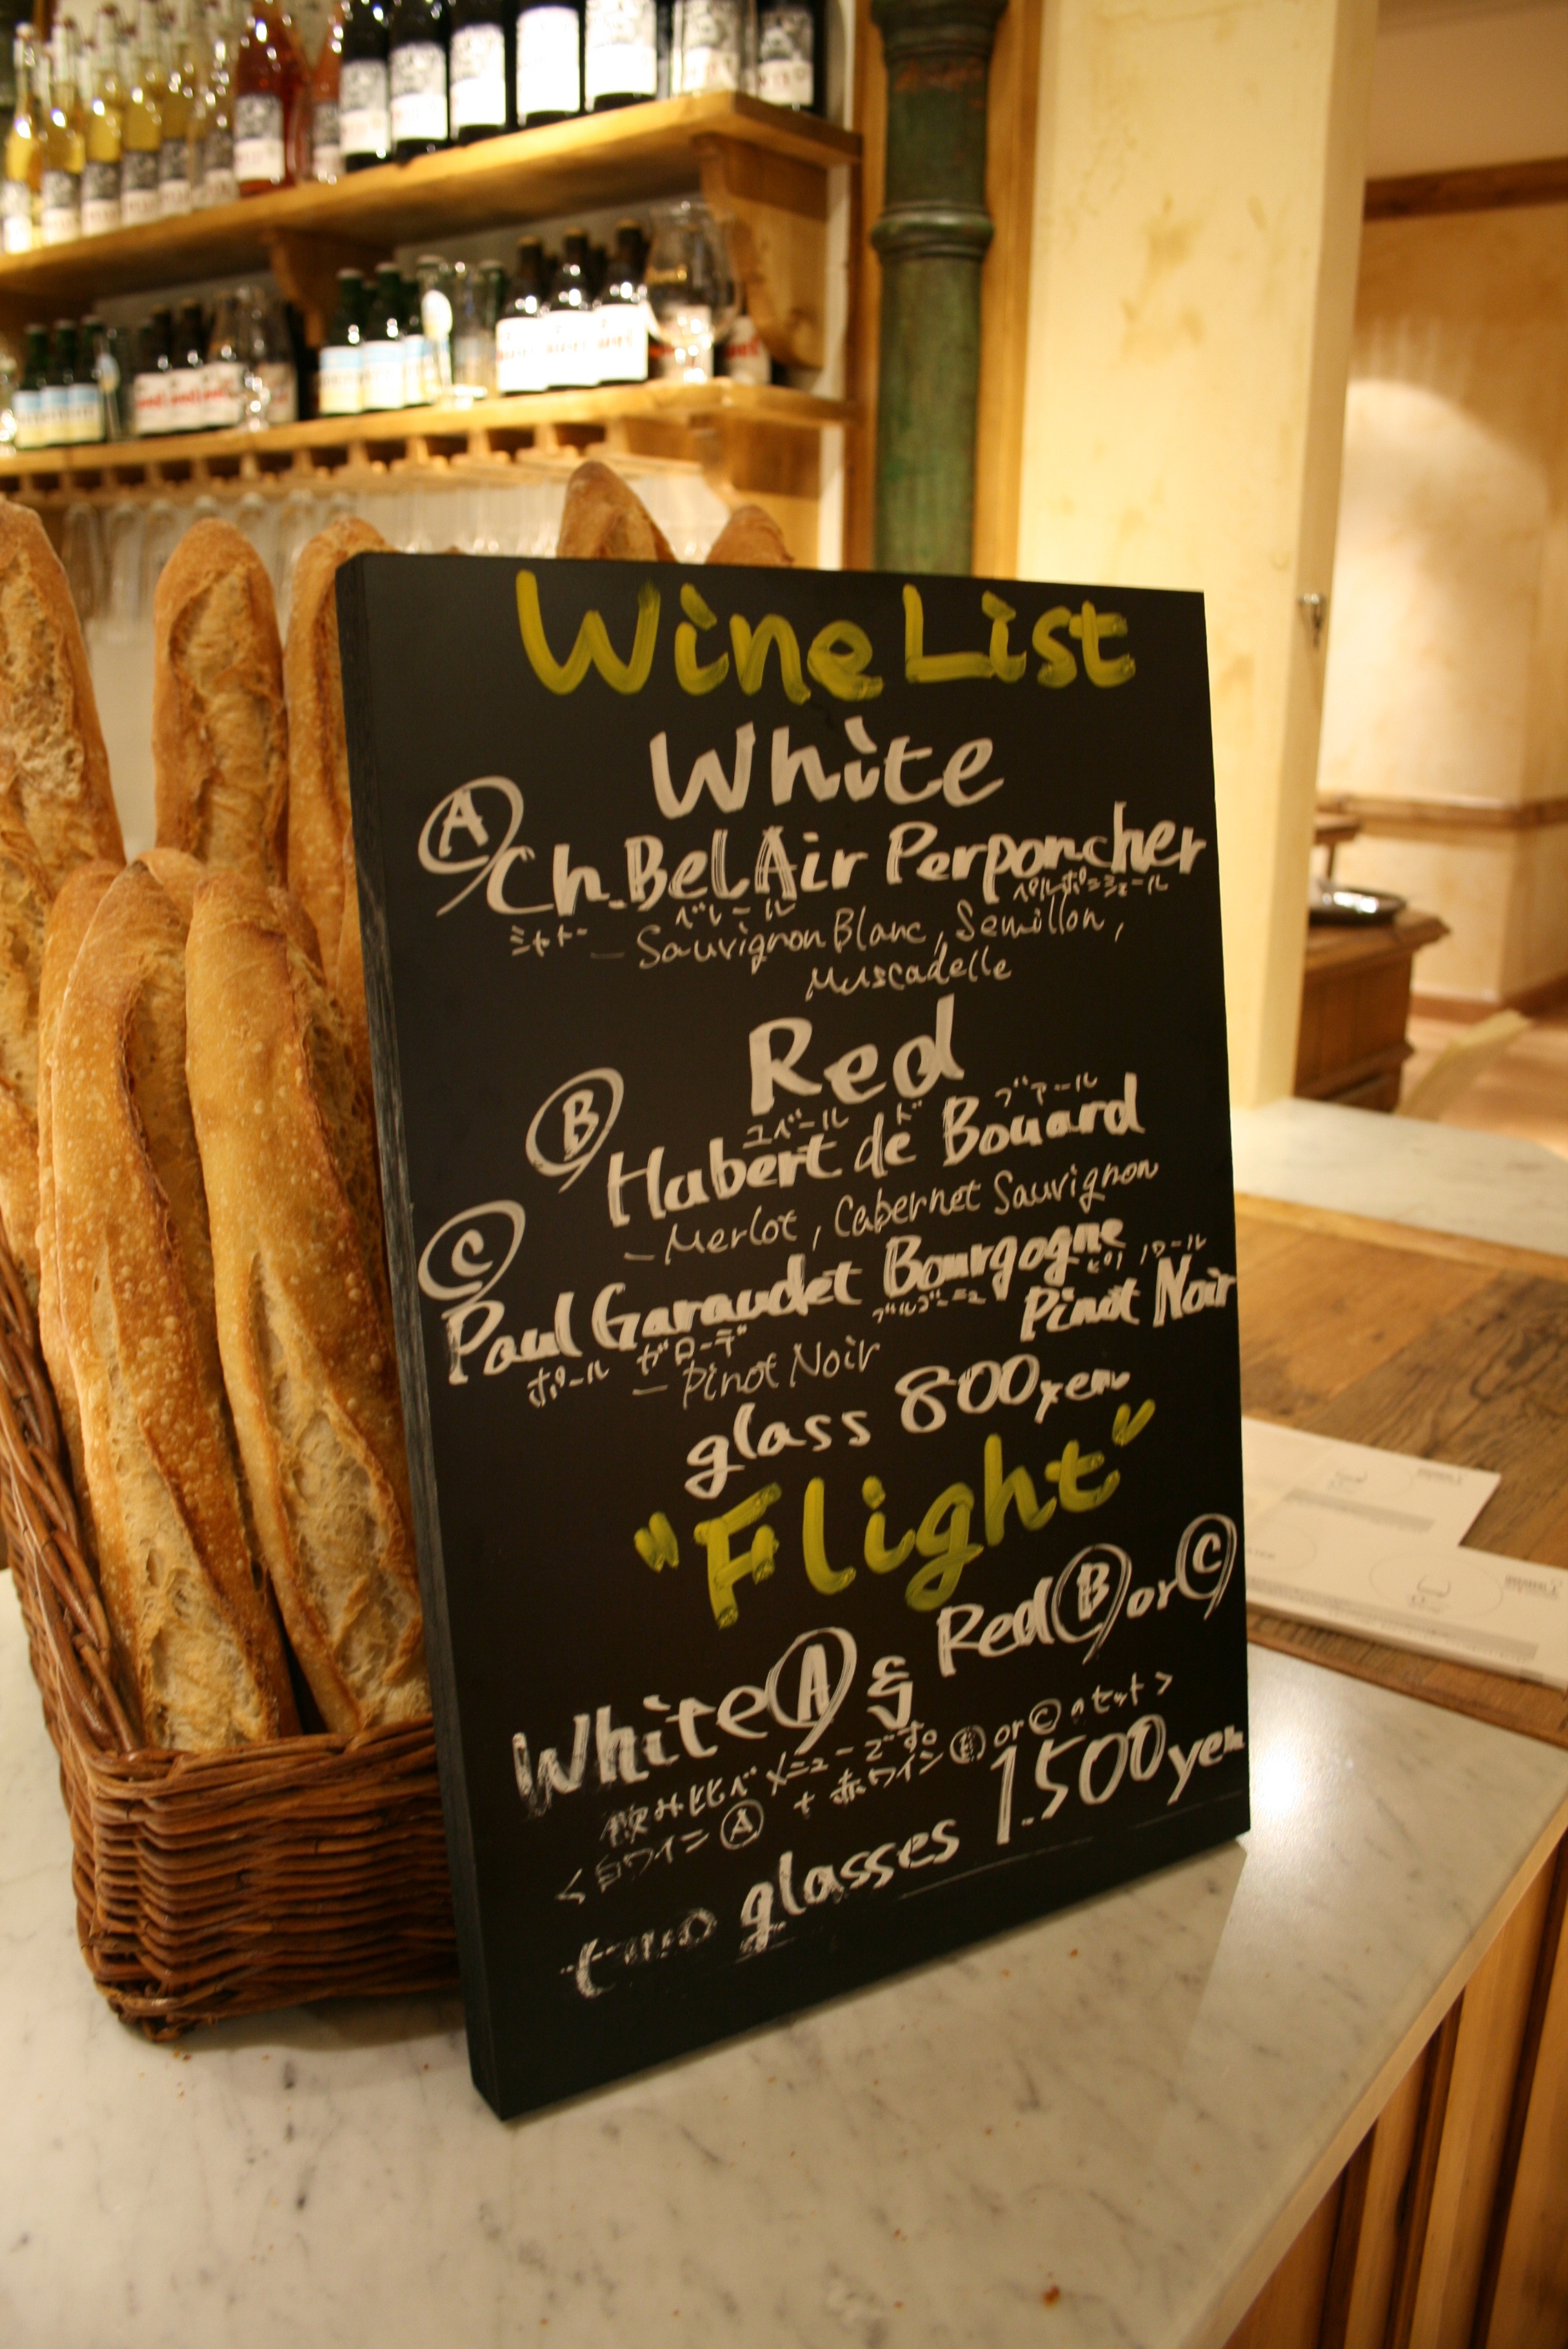 Wine List
White
Ⓐ Ch. Bel Air Perponcher
シャトー ベレール ペルポンシェール
– Sauvignon Blanc, Semillon,
Muscadelle
Red
ユベール ド ブアール
Ⓑ Hubert de Bouard
– Merlot, Cabernet Sauvignon
Ⓒ Paul Garaudet Bourgogne
ピノ ノワール
Pinot Noir
ポール ガローデ ブルゴーニュ
– Pinot Noir
glass 800yen
"Flight"
White Ⓐ & Red Ⓑ or Ⓒ
飲み比べメニューです。
<白ワイン Ⓐ + 赤ワイン Ⓑ or Ⓒ のセット>
two glasses 1.500yen